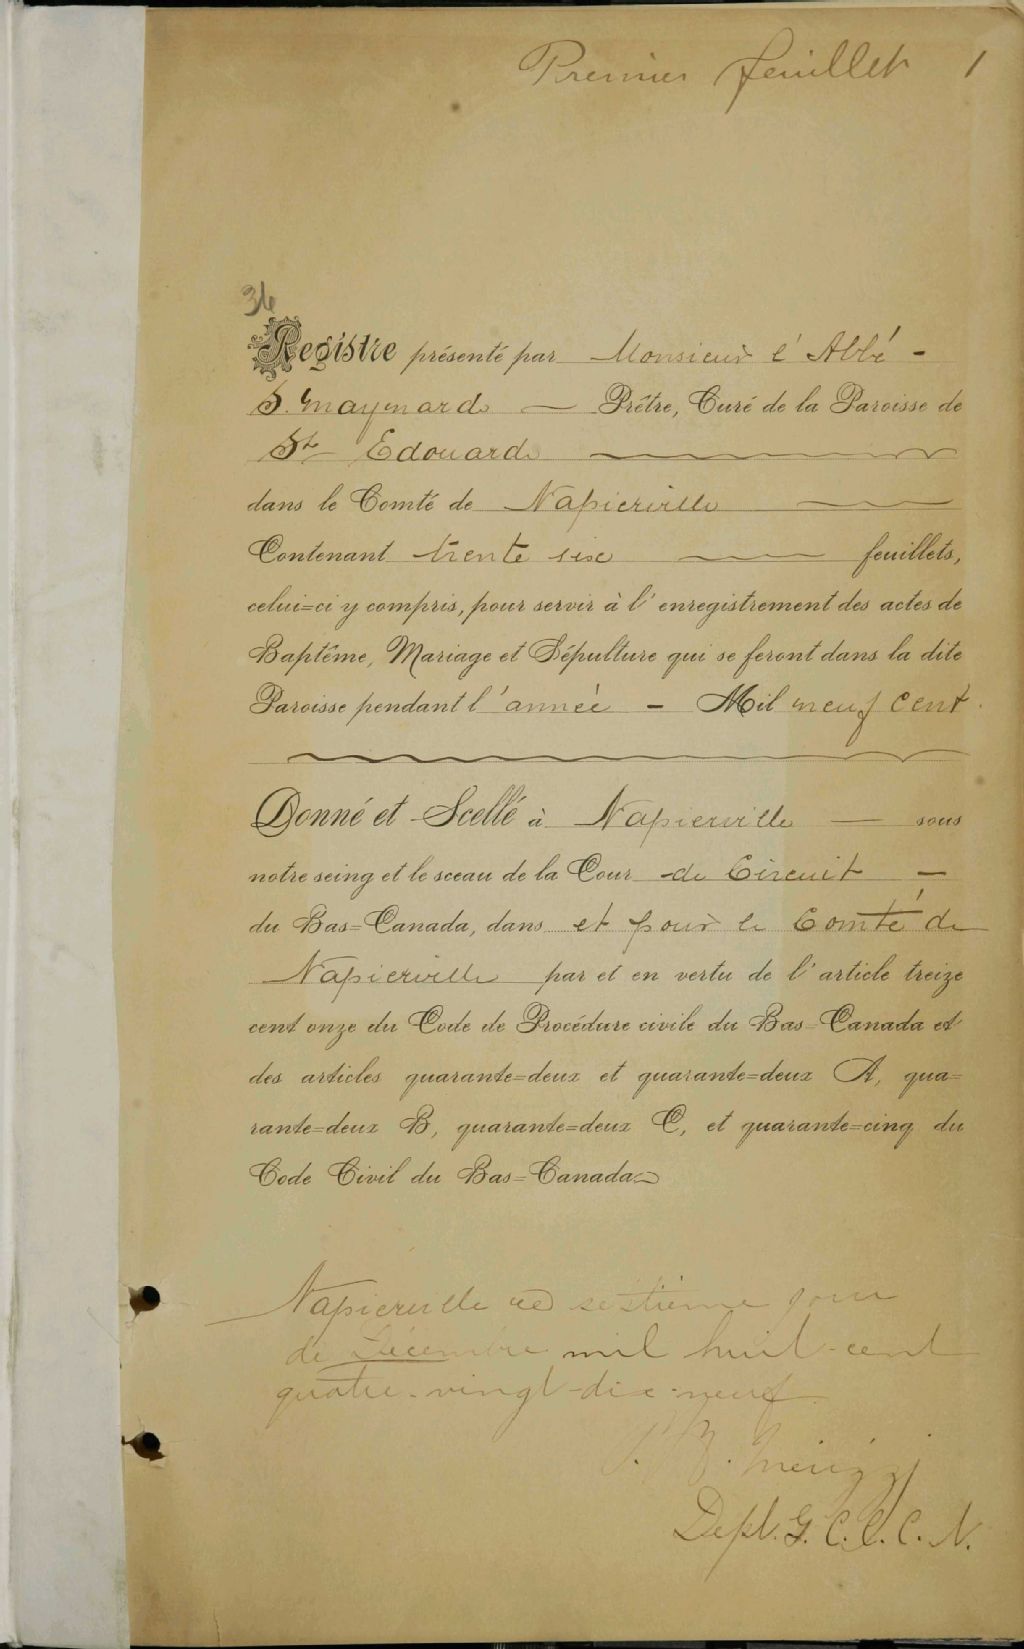 Premier feuillet 1
36
Registre présenté par Monsieur l'Abbé -
S. Maynard — Prêtre, Curé de la Paroisse de
St Edouard
dans le Comté de Napierville
Contenant trente six feuillets,
celui=ci y compris, pour servir à l'enregistrement des actes de
Baptême, Mariage et Sépulture qui se feront dans la dite
Paroisse pendant l'année - Mil neuf cent.
Donné et Scellé à Napierville — sous
notre seing et le sceau de la Cour de Circuit —
du Bas=Canada, dans et pour le Comté de
Napierville par et en vertu de l'article treize
cent onze du Code de Procédure civile du Bas=Canada et
des articles quarante=deux et quarante=deux A, qua=
rante=deux B, quarante=deux C, et quarante=cinq du
Code Civil du Bas=Canada
Napierville ce septième jour
de Décembre mil huit-cent
quatre-vingt-dix-neuf
Mérizzi
Dept. G. C. C. C. N.